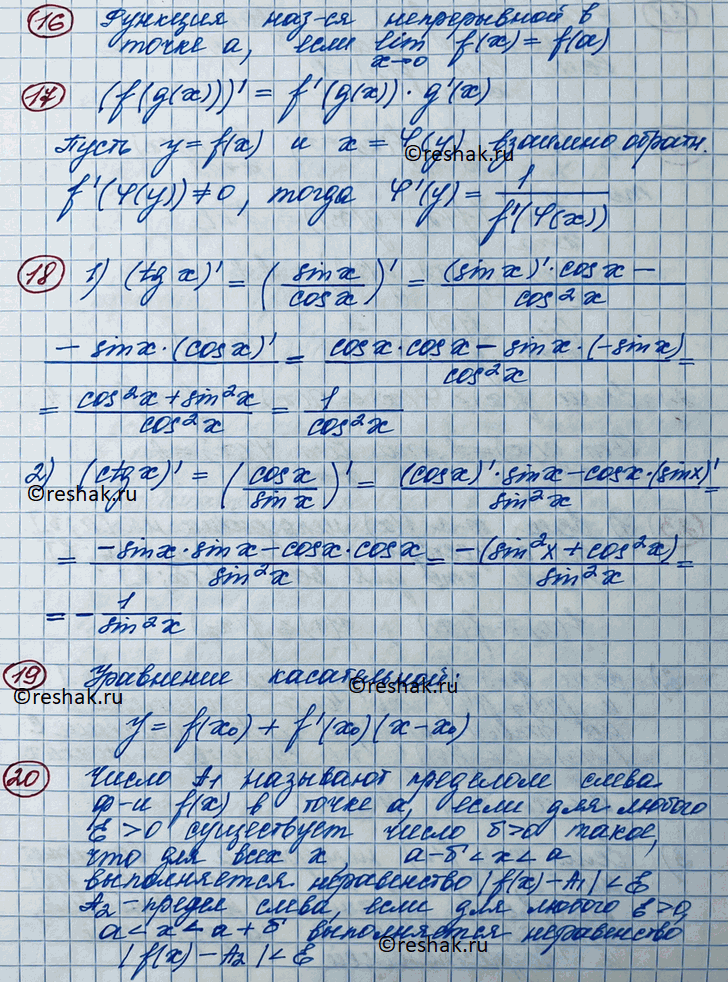 16 Функция наз-ся непрерывной в
точке a, если lim x→0 f(x) = f(a)
17 (f(g(x)))' = f'(g(x)) · g'(x)
Пусть y = f(x) и x = φ(y) взаимно обратн.
©reshak.ru
f'(φ(y)) ≠ 0, тогда φ'(y) = 1/f'(φ(x))
18 1) (tg x)' = (sin x/cos x)' = (sin x)' · cos x − / cos²x
− sin x · (cos x)' / = cos x · cos x − sin x · (−sin x) / cos²x =
= cos²x + sin²x / cos²x = 1/cos²x
2) (ctg x)' = (cos x/sin x)' = (cos x)' · sin x − cos x · (sin x)' / sin²x =
©reshak.ru ©reshak.ru
= −sin x · sin x − cos x · cos x / sin²x = −(sin²x + cos²x) / sin²x =
= − 1/sin²x
19 Уравнение касательной:
©reshak.ru ©reshak.ru
y = f(x₀) + f'(x₀)(x − x₀)
20 Число A₁ называют пределом слева
ф-и f(x) в точке a, если для любого
ε > 0 существует число δ > 0 такое,
что для всех x, a − δ < x < a
выполняется неравенство |f(x) − A₁| < ε
A₂ - предел слева, если для любого ε > 0,
a < x < a + δ выполняется неравенство
©reshak.ru ©reshak.ru
|f(x) − A₂| < ε